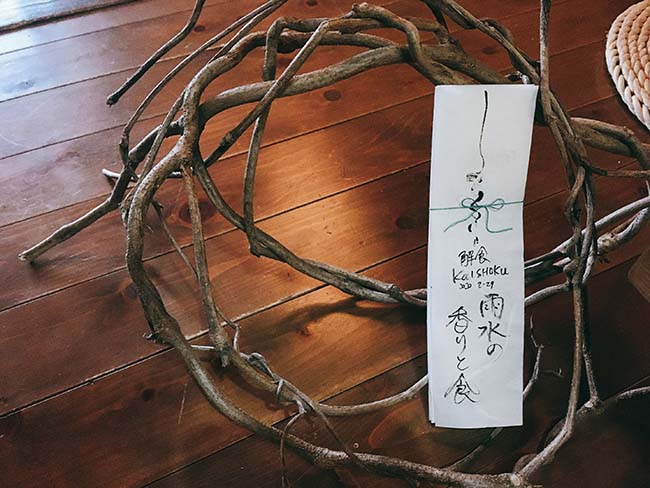 解食
KAISHOKU
2020 2.29
雨水の
香りと食